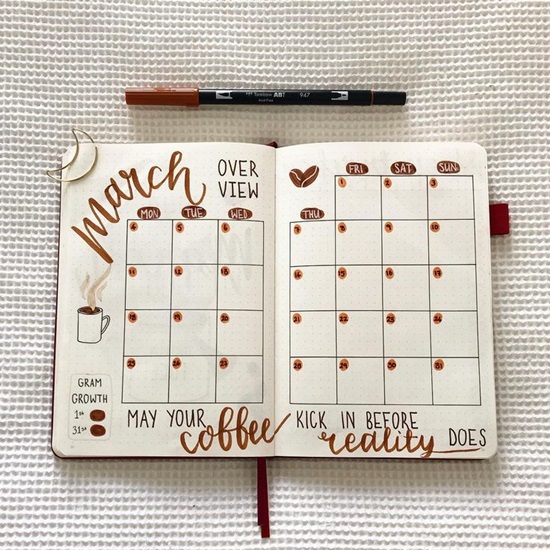 Tombow ABT 947
march
OVER
VIEW
FRI SAT SUN
1 2 3
MON TUE WED THU
4 5 6 7 8 9 10
11 12 13 14 15 16 17
18 19 20 21 22 23 24
25 26 27 28 29 30 31
GRAM
GROWTH
1st
31st
MAY YOUR coffee KICK IN BEFORE reality DOES